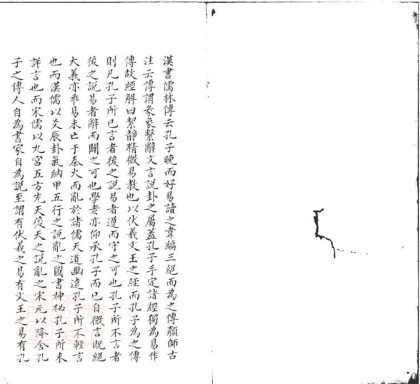 漢書儒林傳云孔子晚而好易讀之韋編三絕而為之傳顏師古
注云傳謂彖象繫辭文言說卦之屬蓋孔子手定諸經獨為易作
傳故經解曰絜靜精微易教也以伏羲文王之經而孔子為之傳
則凡孔子所已言者後之說易者遵而守之可也孔子所不言者
後之說易者辭而闢之可也學者亦仰承孔子而已自微言既絕
大義亦乖易未亡于秦火而亂於諸儒天道幽遠孔子所不輕言
也而漢儒以爻辰卦氣納甲五行之說亂之圖書神祕孔子所未
詳言也而宋儒以九宮五方先天後天之說亂之宋元以降舍孔
子之傳人自為書家自為說至謂有伏羲之易有文王之易有孔